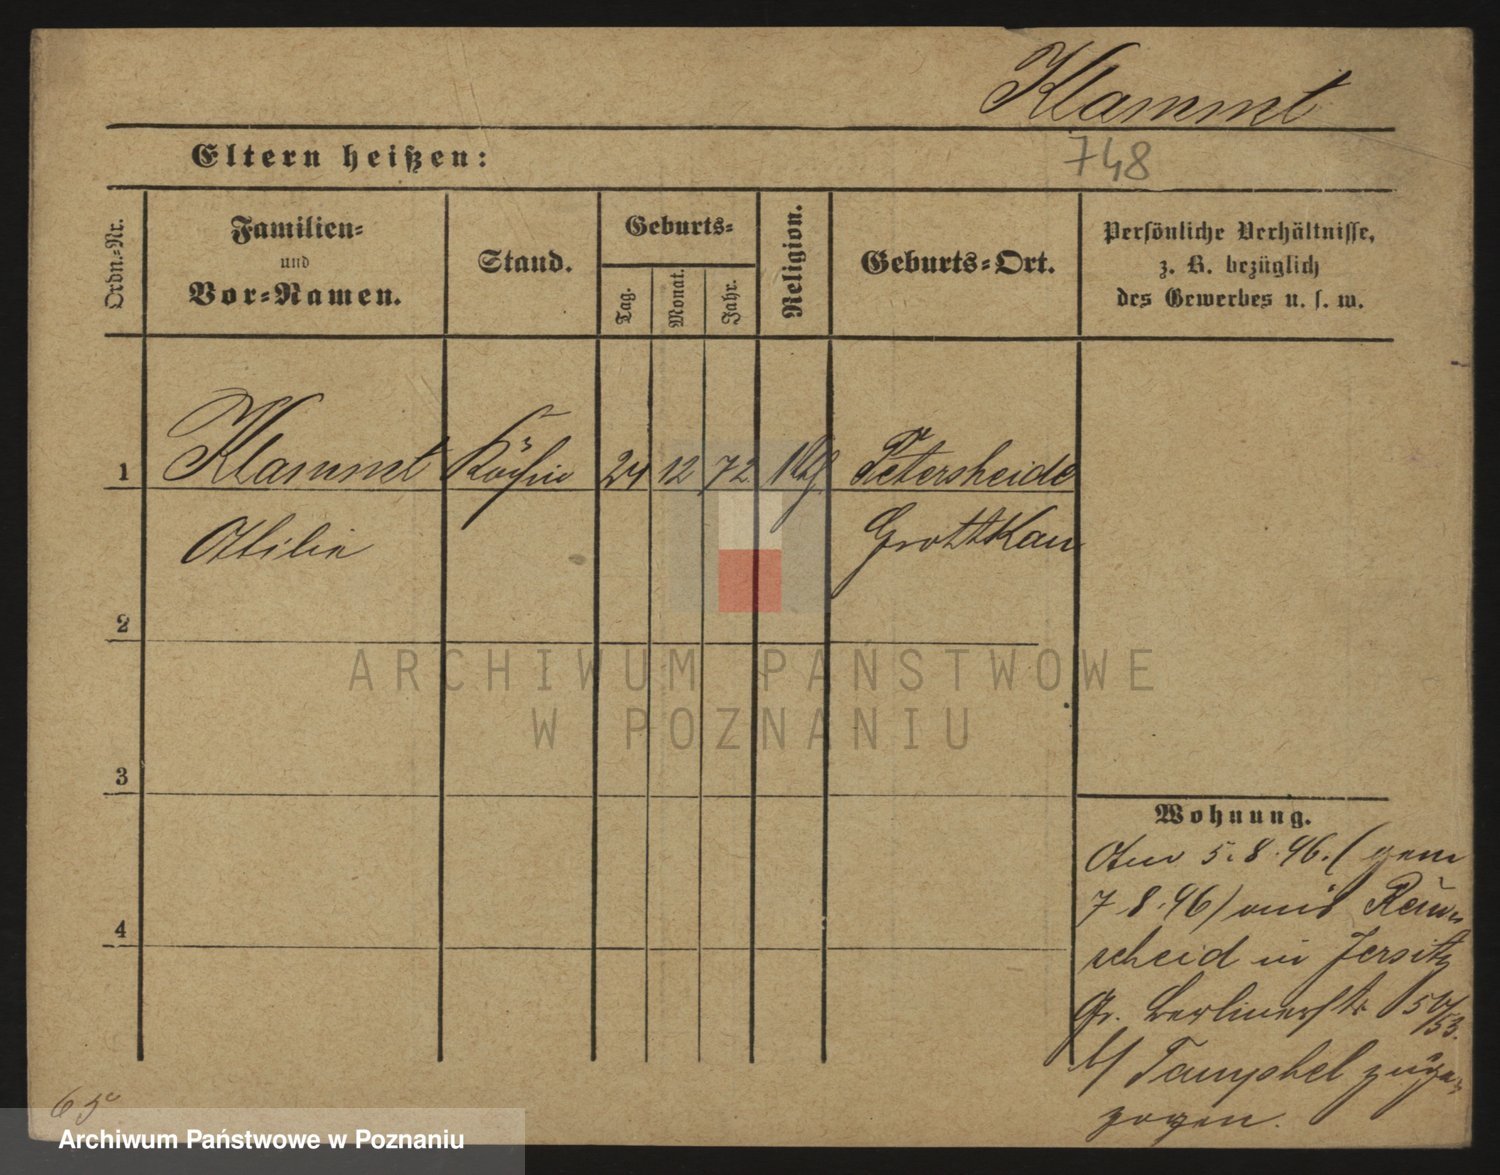 Klammt
748
Eltern heißen:
Ordn.-Nr.
Familien-
und
Vor-Namen.
Stand.
Geburts-
Tag.
Monat.
Jahr.
Religion.
Geburts-Ort.
Persönliche Verhältnisse,
z. B. bezüglich
des Gewerbes u. s. w.
1 Klammt Köchin 24 12 72 Petersheide
Otilie Grottkau
2
ARCHIWUM PAŃSTWOWE
W POZNANIU
3
4
Wohnung.
Am 5.8.96. (gem
7.8.96) aus Rem-
scheid in Jersitz
Gr. Berlinerstr 50/53.
b/ zuge-
zogen.
Archiwum Państwowe w Poznaniu